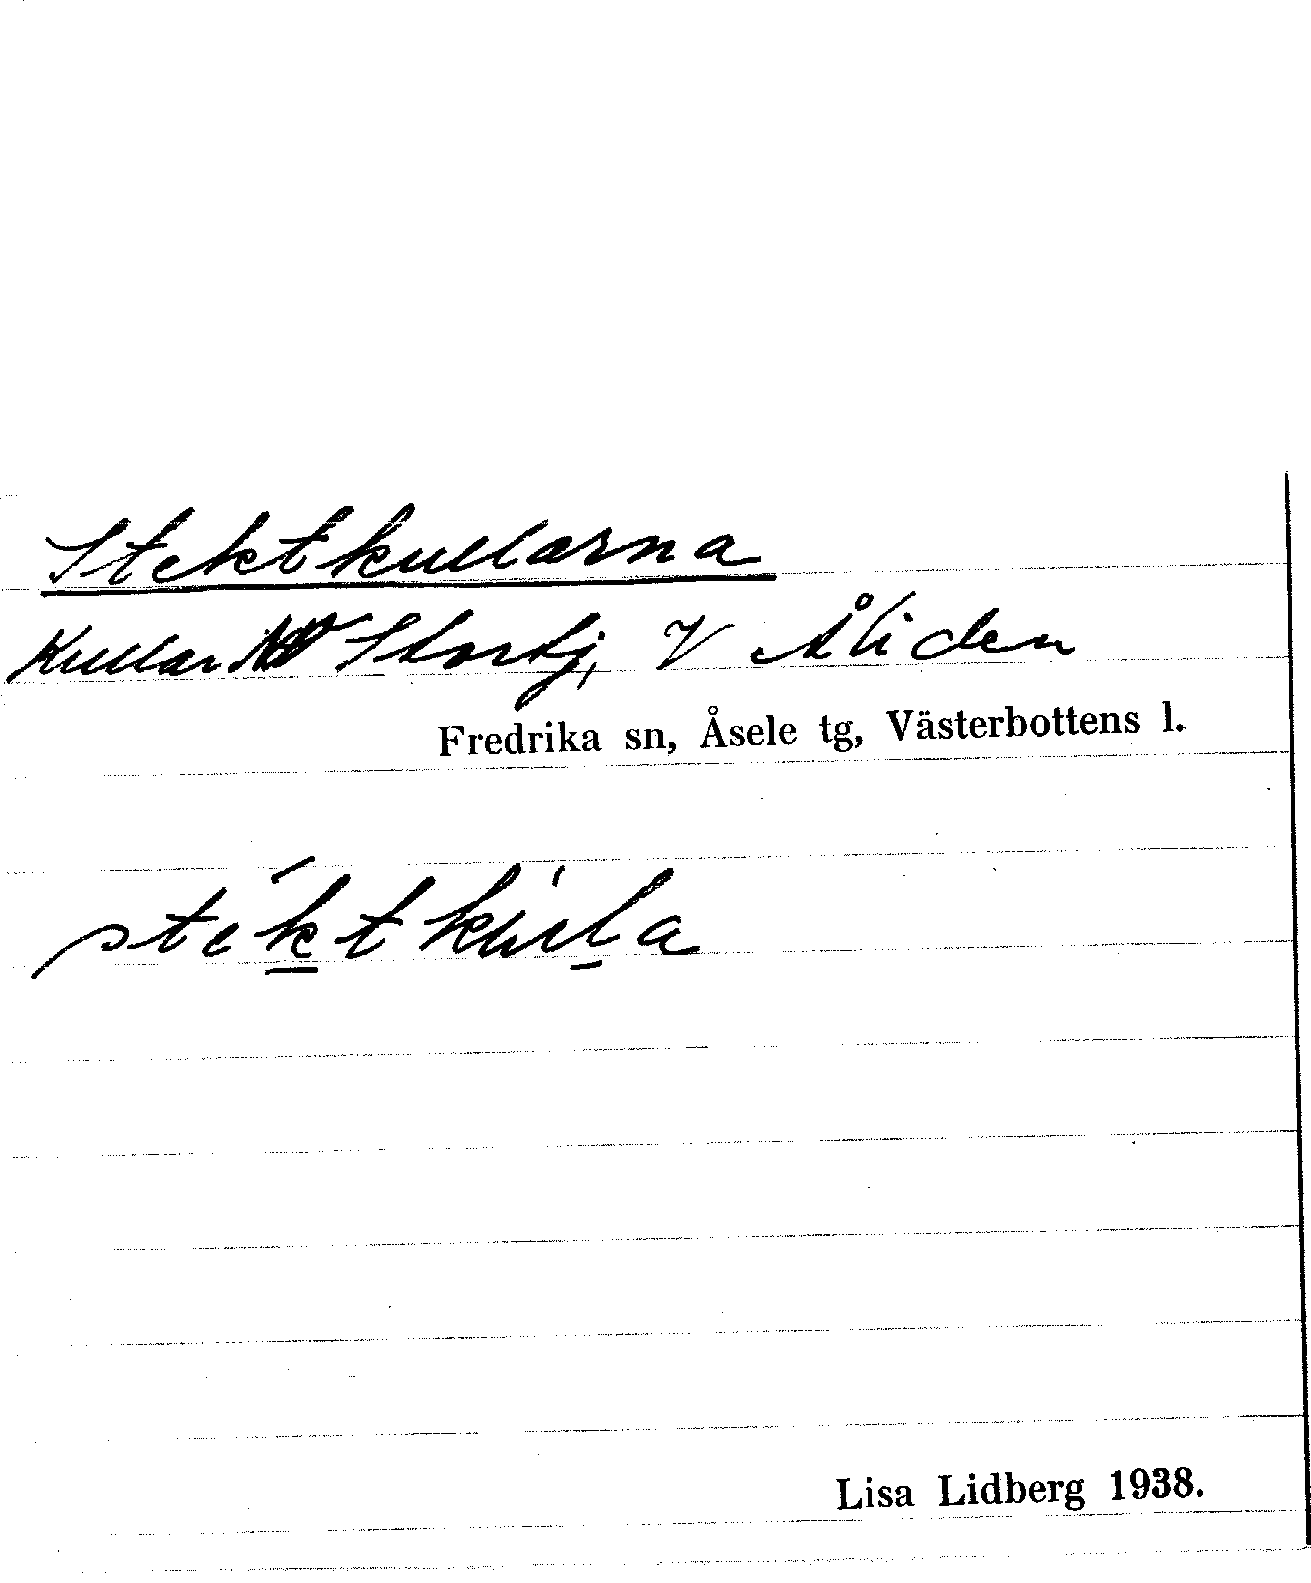 Stektkullarna
Kullar Stortj, V Åliden
Fredrika sn, Åsele tg, Västerbottens l.
stéktkúl̠a
Lisa Lidberg 1938.